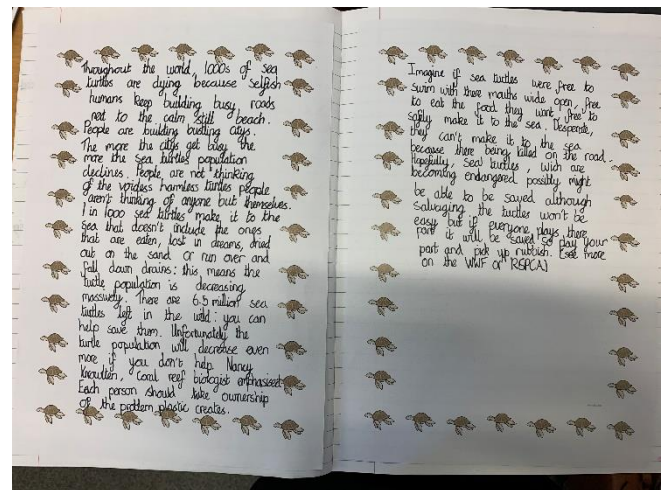 Throughout the world, 1000s of sea
turtles are dying because selfish
humans keep building busy roads
net to the calm still beach.
People are building bustling citys.
The more the citys get busy the
more the sea turtles population
declines. People are not thinking
of the voiceless harmless turtles people
aren't thinking of anyone but themselves.
1 in 1000 sea turtles make it to the
sea that doesn't include the ones
that are eaten, lost in dreams, dried
out on the sand or run over and
fall down drains: this means the
turtle population is decreasing
massively. There are 6.5 million sea
turtles left in the wild: you can
help save them. Unfortunately the
turtle population will decrease even
more if you don't help. Nancy
Knowlten, Coral reef biologist emphasised
Each person should take ownership
of the problem plastic creates.
Imagine if sea turtles were free to
swim with there mouths wide open, free
to eat the food they want, free to
safly make it to the sea. Desperate,
they can't make it to the sea
because there being killed on the road.
Hopefully, sea turtles, wich are
becoming endangered possibly might
be able to be saved although
salvaging the turtles won't be
easy but if everyone plays there
part it will be saved so play your
part and pick up rubbish. (see more
on the WWF or RSPCA)